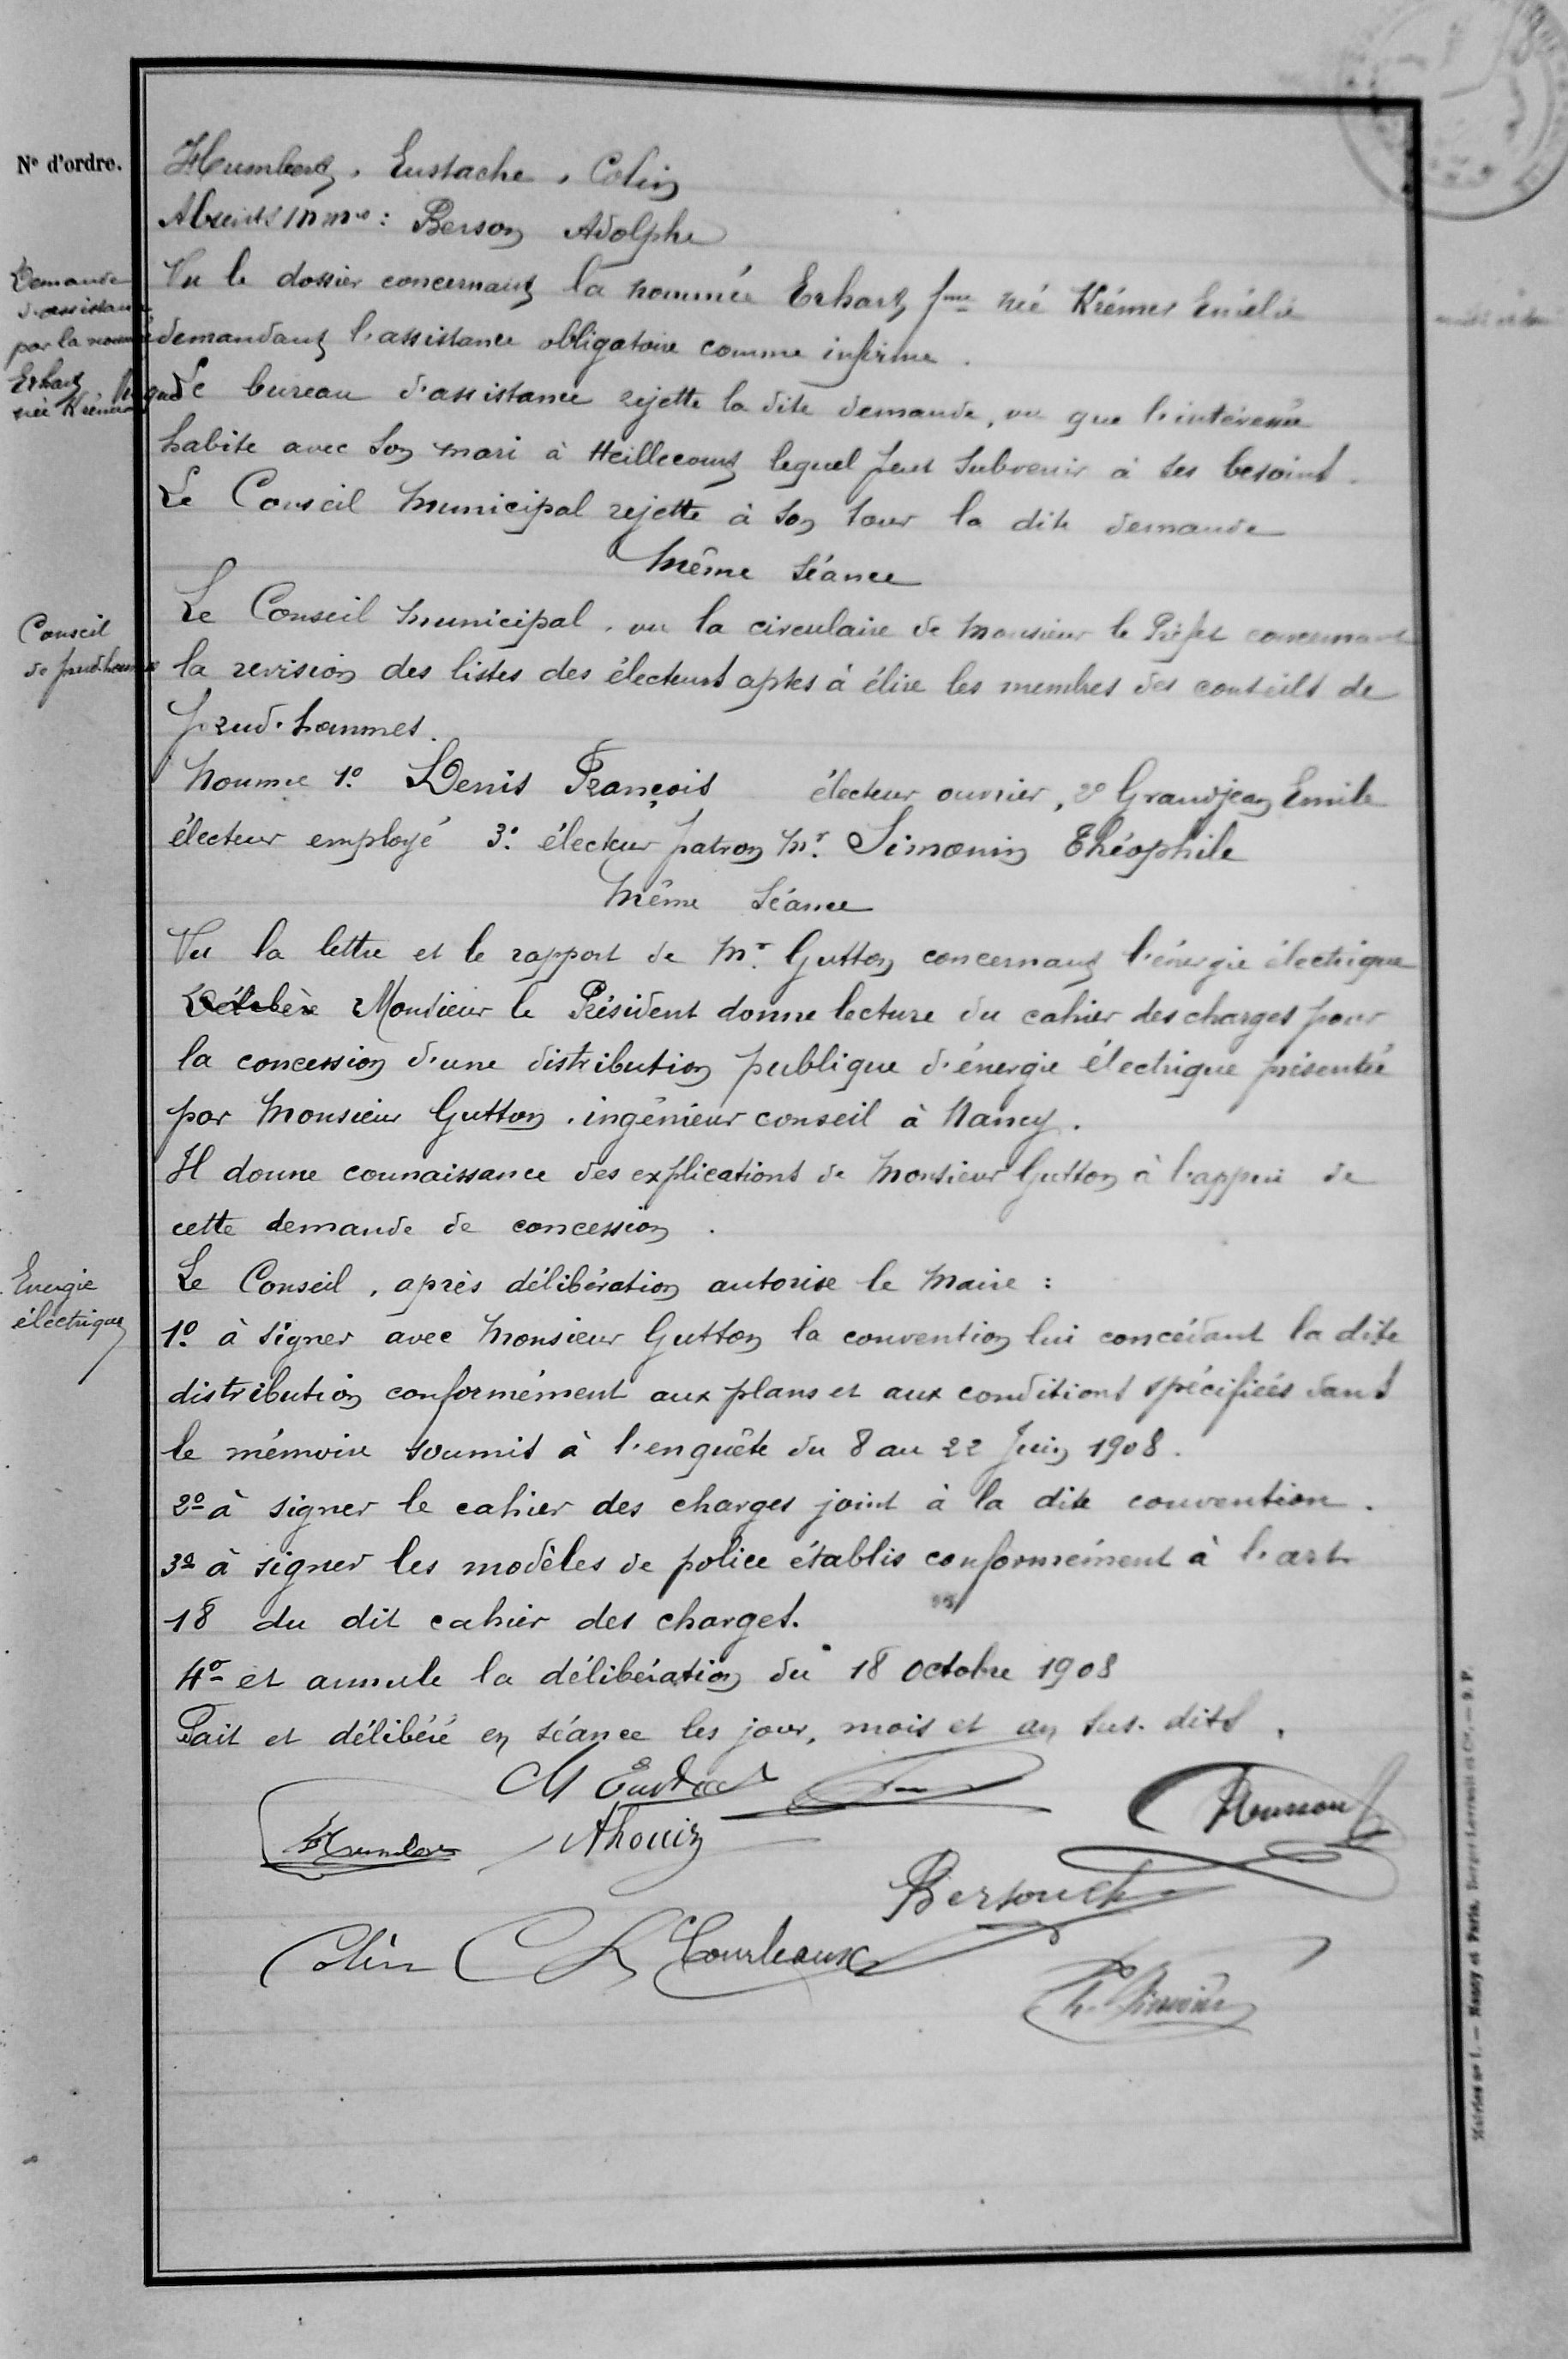 N° d'ordre.
Humbert, Eustache, Colin
Absents MM : Berson Adolphe
Demande
d'assistance
par la nommée
Erhart
née Krémer
Vu le dossier concernant la nommée Erhart fme née Krémer Emélie
demandant l'assistance obligatoire comme infirme.
Le bureau d'assistance rejette la dite demande, vu que l'intéressée
habite avec son mari à Heillecourt lequel peut subvenir à ses besoins.
Le Conseil Municipal rejette à son tour la dite demande
Même séance
Conseil
de prud'hommes
Le Conseil Municipal, vu la circulaire de Monsieur le Préfet concernant
la revision des listes des électeurs aptes à élire les membres des conseils de
prud'hommes.
Nomme 1° Denis François électeur ouvrier, 2° Grandjean Emile
électeur employé 3° électeur patron Mr. Simonin Théophile
Même séance
Vu la lettre et le rapport de Mr. Gutton concernant l'énergie électrique
Délibère Monsieur le Président donne lecture du cahier des charges pour
la concession d'une distribution publique d'énergie électrique présentée
par Monsieur Gutton, ingénieur conseil à Nancy.
Il donne connaissance des explications de Monsieur Gutton à l'appui de
cette demande de concession.
Energie
électrique
Le Conseil, après délibération autorise le Maire :
1° à signer avec Monsieur Gutton la convention lui concédant la dite
distribution conformément aux plans et aux conditions spécifiées dans
le mémoire soumis à l'enquête du 8 au 22 Juin 1908.
2° à signer le cahier des charges joint à la dite convention.
3° à signer les modèles de police établis conformément à l'art
18 du dit cahier des charges.
4° et annule la délibération du 18 octobre 1908
Fait et délibéré en séance les jour, mois et an sus-dits.
M Eustac
Humbert
Thouin
Colin
Courteaux
Mairies n° 1. — Nancy et Paris. Berger-Levrault et Cie.